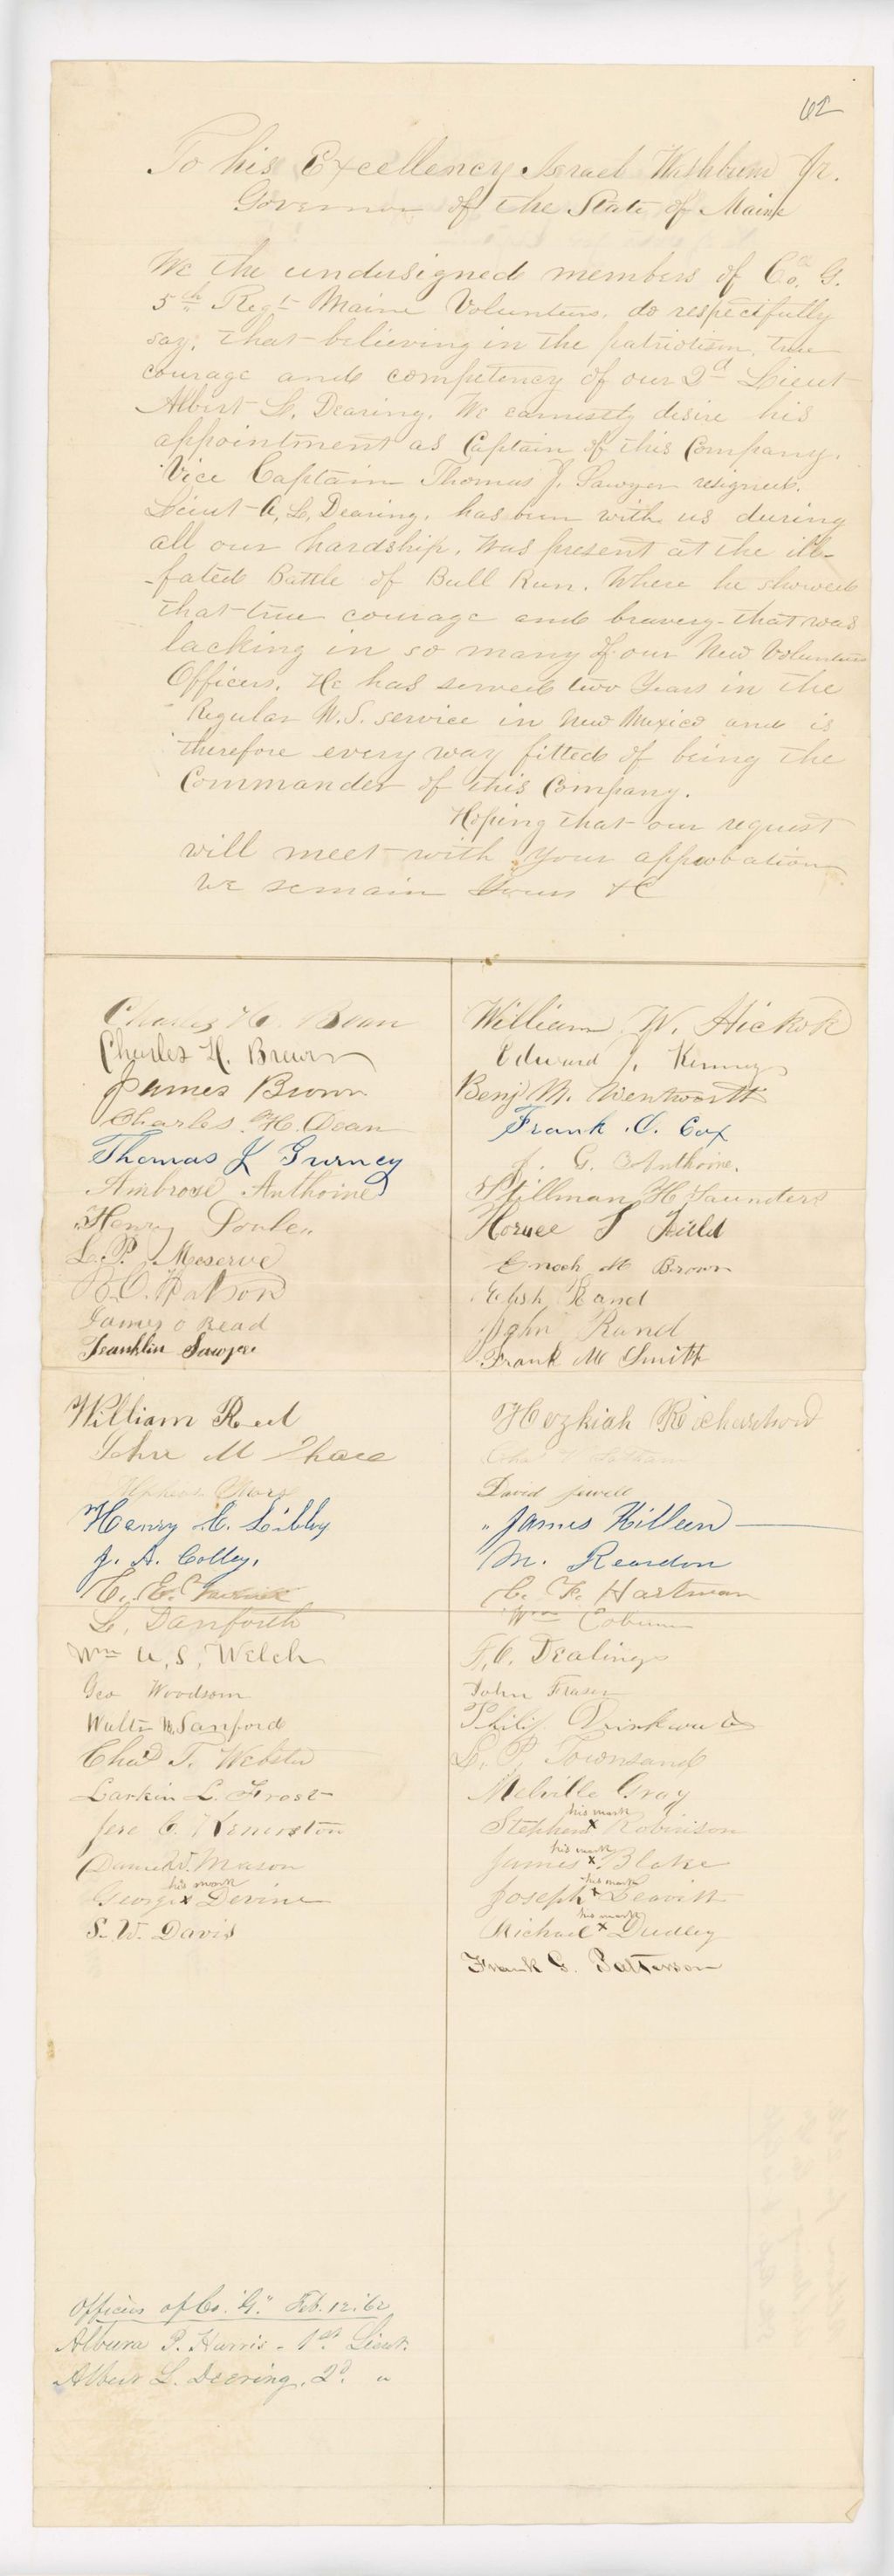 62
To his Excellency Israel Washburn Jr.
Governor of the State of Maine
We the undersigned members of Co. G.
5th Regt Maine Volunteers, do respectfully
say, that believing in the patriotism, true
courage and competency of our 2d Lieut
Albert L. Dearing, We earnestly desire his
appointment as Captain of this Company.
Vice Captain Thomas J. Sawyer resigned.
Lieut A. L. Dearing, has been with us during
all our hardship, Was present at the ill-
fated Battle of Bull Run. Where he showed
that true courage and bravery that was
lacking in so many of our New Volunteer
Officers. He has served two Years in the
Regular U.S. service in New Mexico and is
therefore every way fitted of being the
Commander of this Company.
Hoping that our request
will meet with your approbation
We remain Yours &C
Charles H. Bean
Charles H. Brown
James Brown
Charles H. Dean
Thomas J Gurney
Ambrose Anthoine
Henry
L. P. Meserve
James O Read
Franklin Sawyer
William Reed
John M Chace
Henry C. Libby
J. A. Colley.
C. E.
L. Danforth
Wm U. S. Welch
Geo Woodsom
Walter M. Sanford
Chas T. Webster
Larkin L. Frost
Jere C. Keneriston
Daniel W. Mason
his mark
George x Devine
S. W. Davis
William W. Hickok
Edward J. Kenney
Benj M. Wentworth
Frank O. Cox
J. G. Anthoine.
Stillman H Saunders
Horace S Field
Enoch M Brown
Elish Rand
John Rand
Frank M Smith
Hezkiah Richardson
David Jewell
James Killeen
M. Reardon
C. F. Hartman
Wm Coburn
F. C. Dealings
John Fraser
Philip Drinkwater
L. P. Townsand
Melville Gray
his mark
Stephen x Robinson
his mark
James x Blake
his mark
Joseph x Leavitt
his mark
Michael x Dudley
Frank G. Patterson
Officers of Co. "G." Feb. 12. '62
Albura P. Harris - 1st Lieut.
Albert L. Deering, 2d. "